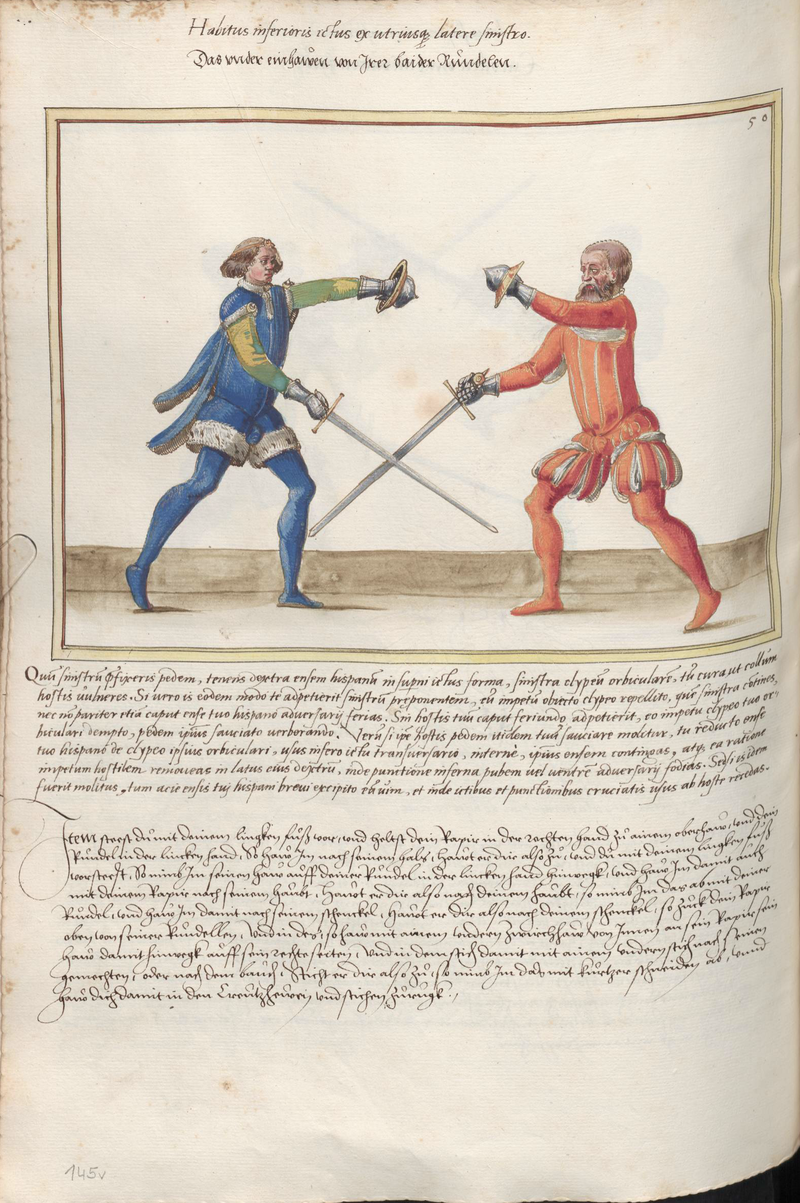 Habitus inferioris ictus ex utriusq; latere sinistro.
Das vnder einhawen von Irer baider Rundelen.
50
Quū sinistrū p̱fixeris pedem, tenens dextra ensem hispanū in supni ictus forma, sinistra clypeū orbiculare, tū cura ut collum
hostis uulneres. Si uero is eodem modo te adpetierit sinistrū preponentem, eū impetū obiecto clypeo repellito, que sinistra contines,
nec nō pariter etiā caput ense tuo hispano aduersarij ferias. Sin hostis tuū caput feriundo adpetierit, eo impetu clypeo tuo or-
biculari dempto, pedem ipsius sauciato uerberando. Verū si ipe hostis pedem itidem tuū sauciare molitur, tu reducto ense
tuo hispano de clypeo ipsius orbiculari, usus infero ictu transuersario, internè, ipsius ensem contingas, atq; ea ratione
impetum hostilem remoueas in latus eius dextrū, inde punctione inferna pubem uel uentrē aduersarij fodias. Sed si is idem
fuerit molitus, tum acie ensis tui hispani breui excipito eā uim, et inde ictibus et punctionibus cruciatis usus ab hoste recedas.
Item steest du mit deinem lingken fuß vor, vnnd heltst dein Rapir in der rechten hand zu ainem oberhaw, vnd dein
Rundel in der lincken hand, So haw Im nach seinem hals, Hawt er dir also zu, vnd du mit deinem lingken fuß
vorsteest, So nimb Im seinen haw auff deiner Rundel in der lincken hand hinwegk, vnd haw Im damit auch
mit deinem Rapir nach seinem haubt, Hawt er dir also nach deinem haubt, so nimb Im das ab mit deiner
Rundel, vnd haw Im damit nach seinem schenckel, Hawt er dir also nach deinem schenckel, so zuck dein Rapir
oben von seiner Rundellen, vnd in des, so haw mit ainem vndern zwirchhaw von Innen an sein Rapir sein
haw damit hinwegk auff sein rechte seitten, vnd in dem stich damit mit ainem vndern stich nach seinen
gemechten, oder nach dem bauch, Sticht er dir also zu, so nimb Im das mit kurtzer schneiden ab, vnnd
haw dich damit in den Creutzhewen vnd stichen zurugk.
145v